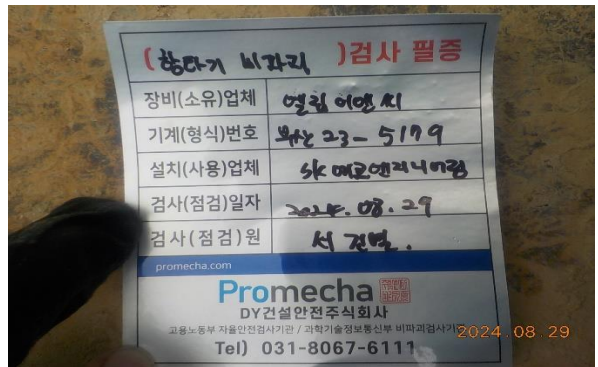 ( 항타기 비파괴 )검사 필증
장비(소유)업체 열림이앤씨
기계(형식)번호 부산 23-5179
설치(사용)업체 SK에코엔지니어링
검사(점검)일자 2024. 08. 29
검사(점검)원
promecha.com
Promecha
DY건설안전주식회사
고용노동부 자율안전검사기관 / 과학기술정보통신부 비파괴검사기관
Tel) 031-8067-6111
2024.08.29